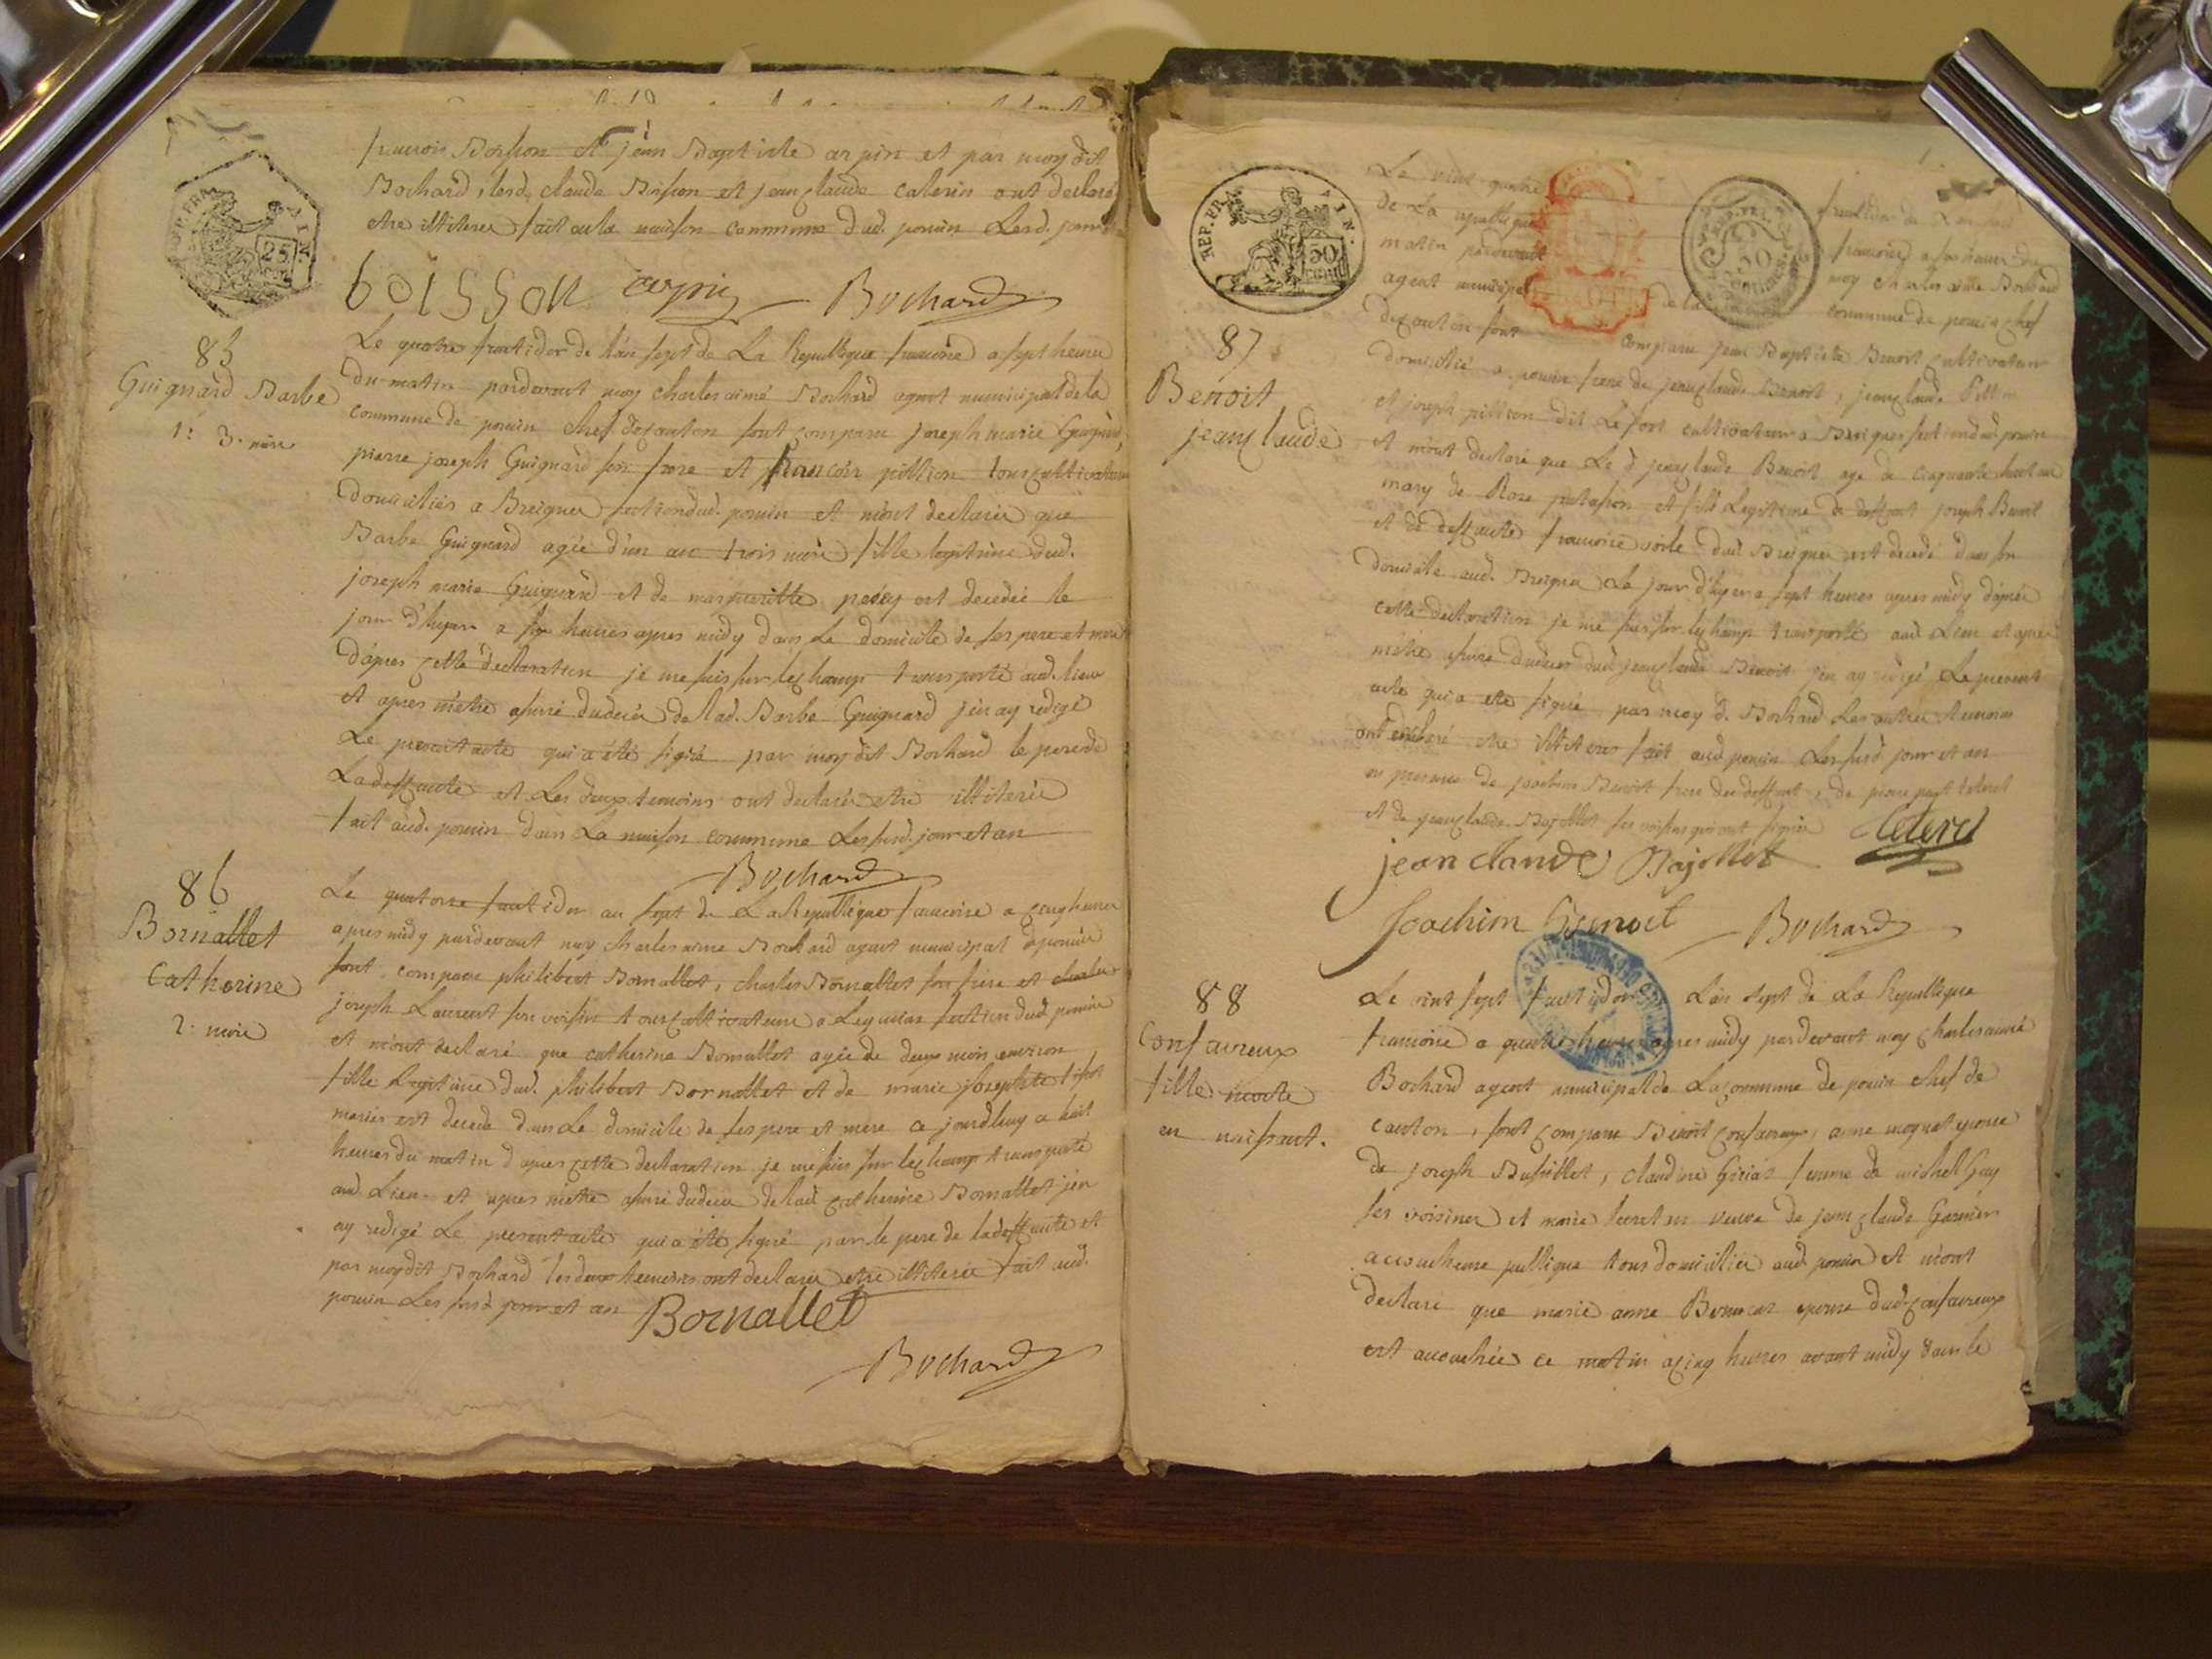 françois Boisson et jean Baptiste arpin et par moy dit
Bochard, lesd. claude Boisson et jean claude caterin ont declaré
etre illiteres fait a la maison commune dud. poncin Lesd. jour
REP. FRA. AIN.
25
boisson arpin Bochard
85
Guignard Barbe
1: 3. mois
Le quatre fructidor de l'an sept de La Republique francoise a sept heures
du matin pardevant moy charles aimé Bochard agent municipal de la
commune de poncin chef de canton sont comparu joseph marie Guignard,
pierre joseph Guignard son frere et francois pillion tous cultivateurs
domiciliés a Breignes section dud. poncin et m'ont declaré que
Barbe Guignard agée d'un an trois mois fille legitime dud.
joseph marie Guignard et de margueritte est decedée le
jour d'hyer a heures apres midy dans Le domicile de ses pere et mere
d'apres cette declaration je me suis sur le champ transporté aud. lieu
et apres m'etre assuré du decès de lad. Barbe Guignard j'en ay redigé
Le present acte qui a été signé par moy dit Bochard le pere de
La deffunte et Les deux temoins ont declarés etre illiterés
fait aud. poncin dans La maison commune Les susd. jour et an
Bochard
86
Bornallet
Catherine
2: mois
Le quatorze fructidor an sept de La Republique francoise a cinq heures
apres midy pardevant moy charles aimé Bochard agent municipal de poncin
sont comparu philibert Bornallet, charles Bornallet son frere et
joseph Laurent son voisin tous cultivateurs a Leymiat section dud poncin
et m'ont declaré que catherine Bornallet agée de deux mois environ
fille Legitime dud. philibert Bornallet et de marie josephte
mariés est decedé dans Le domicile de ses pere et mere ce jourdhuy a huit
heures du matin d'apres cette declaration je me suis sur le champ transporté
aud. Lieu et apres m'etre assuré du decès de lad. catherine Bornallet j'en
ay redigé Le present acte qui a été signé par le pere de la deffunte et
par moy dit Bochard les deux temoins ont declarés etre illiterés fait aud.
poncin Les susd. jour et an Bornallet
Bochard
REP. FRA. AIN.
50
REP. FRA.
50
Le vint quatre fructidor de L'an
de La republique francoise a six heures du
matin pardevant moy charles aimé Bochard
agent municipal de la commune de poncin chef
87
Benoit
jean claude
de canton sont comparu jean Baptiste Benoit cultivateur
domicilié a poncin frere de jean claude Benoit, jean claude Pillion
et joseph pillion dit Le fort cultivateurs a Breignes section dud. poncin
et m'ont declaré que Le d. jean claude Benoit agé de cinquante huit ans
mary de Rose et fils Legitime de deffunt joseph Benoit
et de deffunte francoise dud. Breignes est decedé dans son
domicile aud. Breignes Le jour d'hyer a sept heures apres midy d'apres
cette declaration je me suis sur le champ transporté aud. Lieu et apres
m'etre assuré du decès dud. jean claude Benoit j'en ay redigé Le present
acte qui a eté signé par moy d. Bochard Les autres temoins
ont declaré etre illiteres fait aud poncin Les susd. jour et an
en presence de joachim Benoit frere du deffunt, de
et de jean claude Bajollet ses voisins qui ont signés
jean claude Bajollet
joachim Benoit Bochard
88
Confavreux
fille morte
en naissant.
Le vint sept fructidor L'an sept de La Republique
francoise a quatre heures apres midy pardevant moy charles aimé
Bochard agent municipal de La commune de poncin chef de
canton, sont comparu Benoit Confavreux, anne moynat epouse
de joseph Busillet, claudine Girias femme de michel Gay
ses voisines et marie veuve de jean claude Garnier
accoucheuse publique tous domiciliés aud. poncin et m'ont
declaré que marie anne epouse dud. confavreux
est accouchée ce matin a cinq heures avant midy dans le